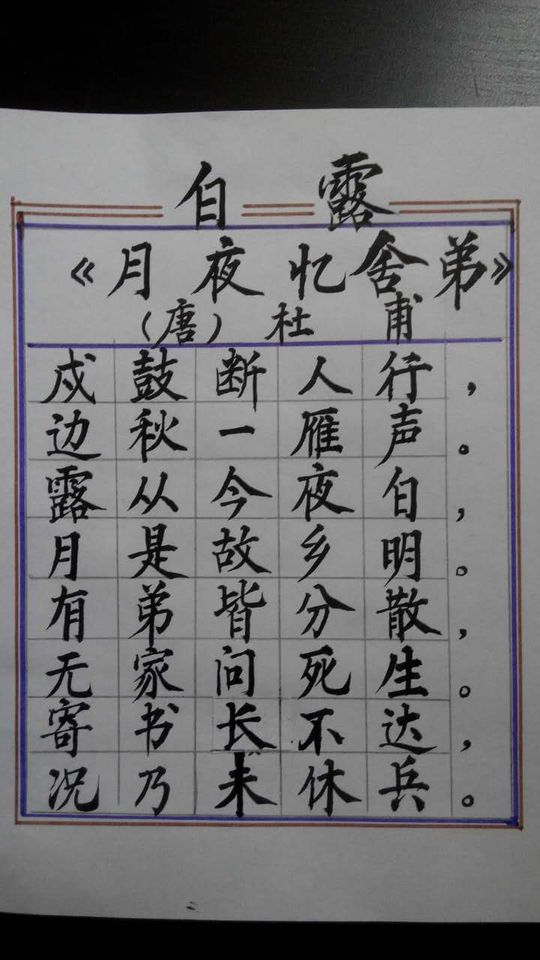 白露
《月夜忆舍弟》
（唐）杜甫
戍鼓断人行，
边秋一雁声。
露从今夜白，
月是故乡明。
有弟皆分散，
无家问死生。
寄书长不达，
况乃未休兵。